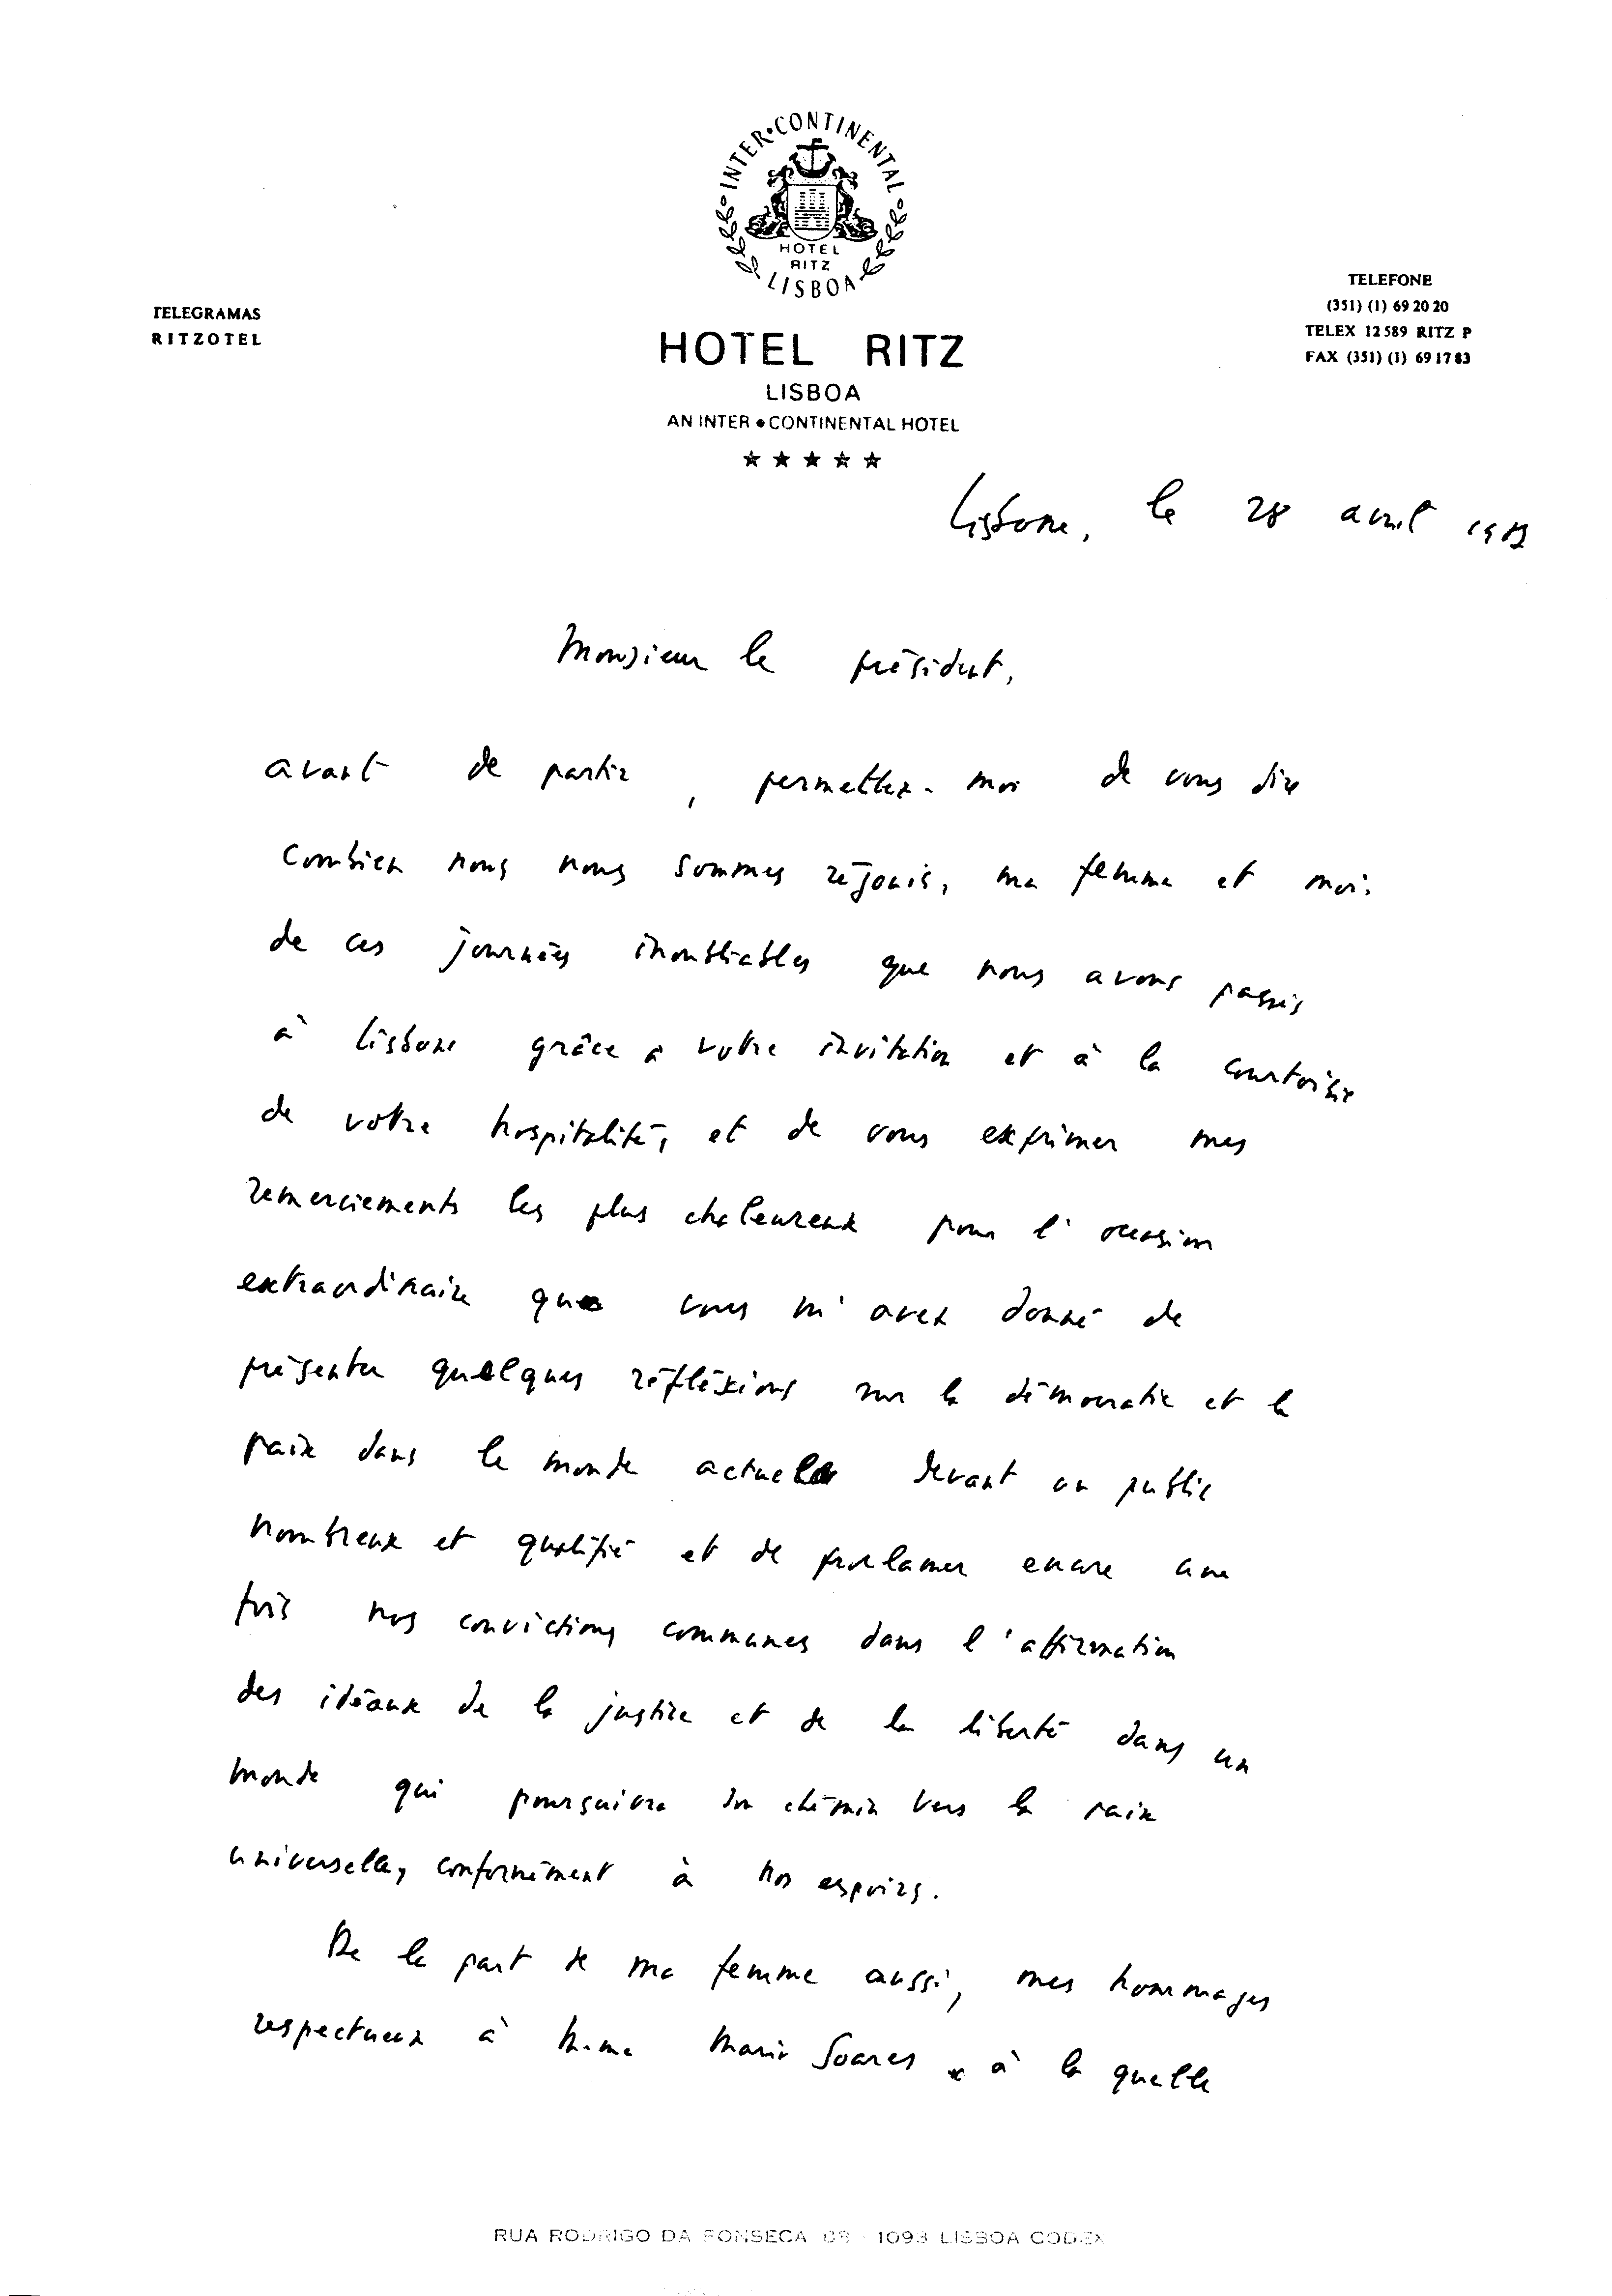 INTER•CONTINENTAL
HOTEL
RITZ
LISBOA
TELEGRAMAS
RITZOTEL
TELEFONE
(351) (1) 69 20 20
TELEX 12589 RITZ P
FAX (351) (1) 69 17 83
HOTEL RITZ
LISBOA
AN INTER•CONTINENTAL HOTEL
★★★★★
Lisbone, le 28 avril
Monsieur le président,
avant de partir, permettez-moi de vous dire
combien nous nous sommes réjouis, ma femme et moi,
de ces journées inoubliables que nous avons passés
à Lisbone grâce a votre invitation et à la courtoisie
de votre hospitalité, et de vous exprimer mes
remerciements les plus chaleureux pour l'occasion
extraordinaire que vous m'avez donné de
présenter quelques réfléxions sur la démocratie et la
paix dans le monde actuel devant un public
nombreux et qualifié et de proclamer encore une
fois nos convictions communes dans l'affirmation
des idéaux de la justice et de la liberté dans un
monde qui poursuivra son chémin vers la paix
universelle, conformément à nos espoirs.
De la part de ma femme aussi, mes hommages
respectueux à M.me Soares à la quelle
RUA RODRIGO DA FONSECA - 1093 LISBOA CODEX